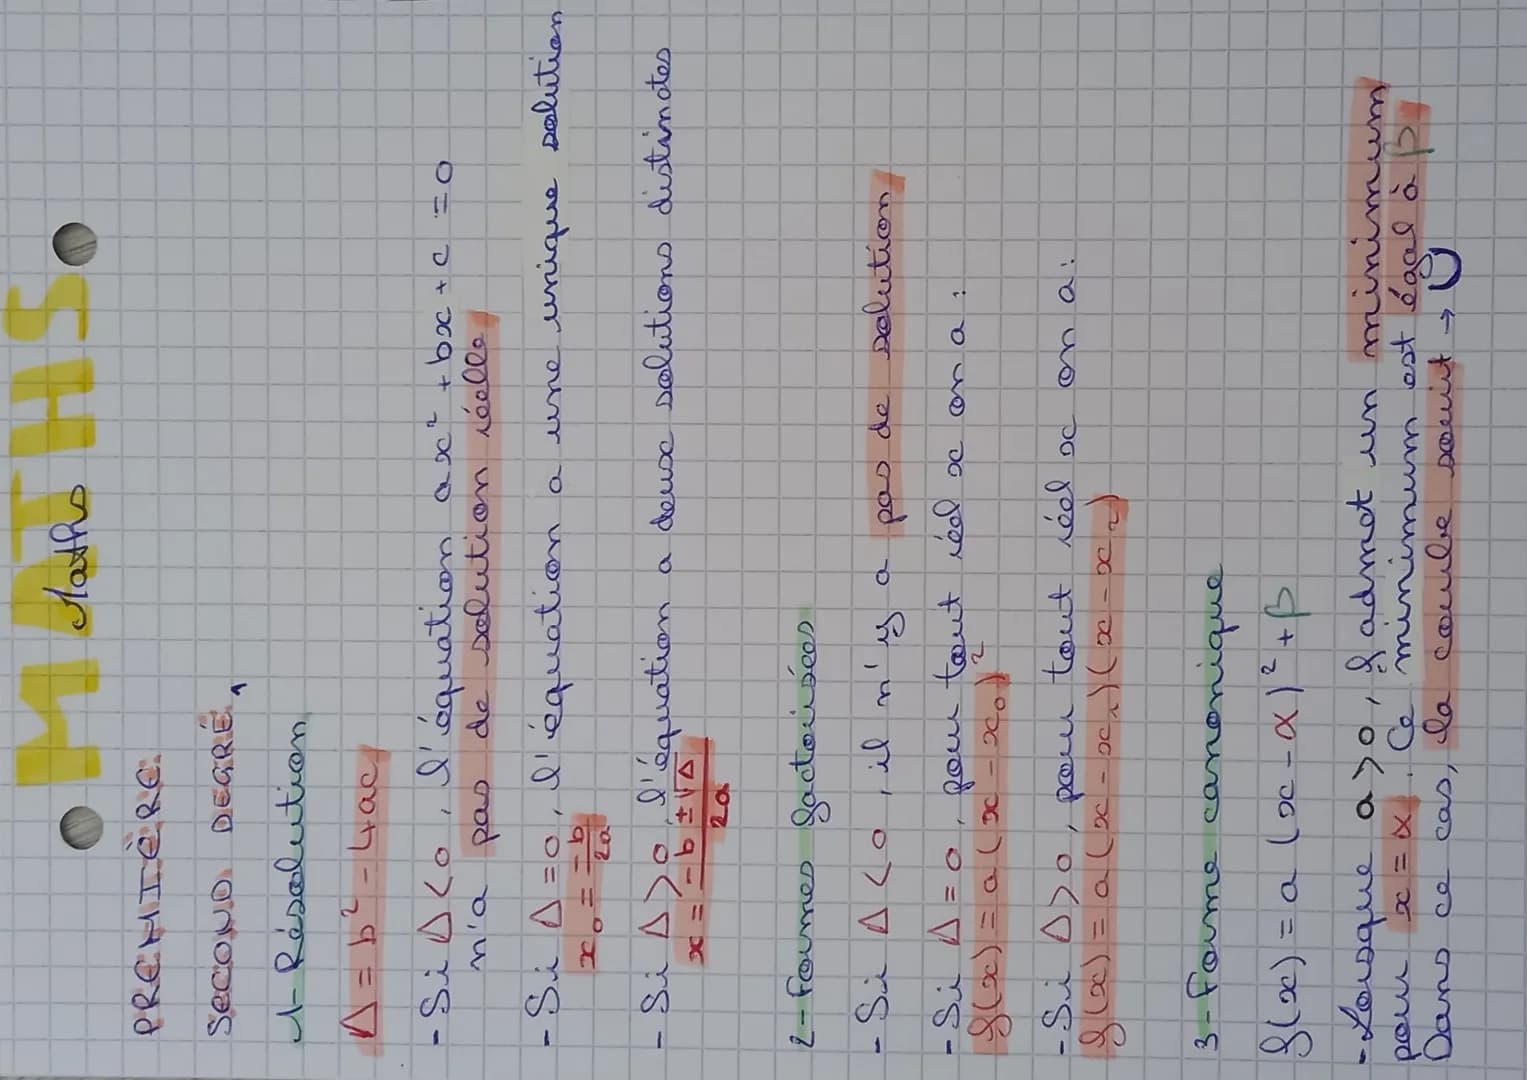 MATHS
Maths
PREMIÈRE.
SECOND DEGRÉ,
1- Résolution
Δ = b² - 4ac
- Si Δ < 0, l'équation ax² + bx + c = 0
n'a pas de solution réelle
- Si Δ = 0, l'équation a une unique solution
x₀ = -b/2a
- Si Δ > 0, l'équation a deux solutions distinctes
x = -b ± √Δ / 2a
2- Formes factorisées
- Si Δ < 0, il n'y a pas de solution
- Si Δ = 0, pour tout réel x on a :
f(x) = a(x - x₀)²
- Si Δ > 0, pour tout réel x on a :
f(x) = a(x - x₁)(x - x₂)
3- Forme canonique
f(x) = a (x - α)² + β
- Lorsque a > 0, f admet un minimum
pour x = α. Ce minimum est égal à β.
Dans ce cas, la courbe sourit →